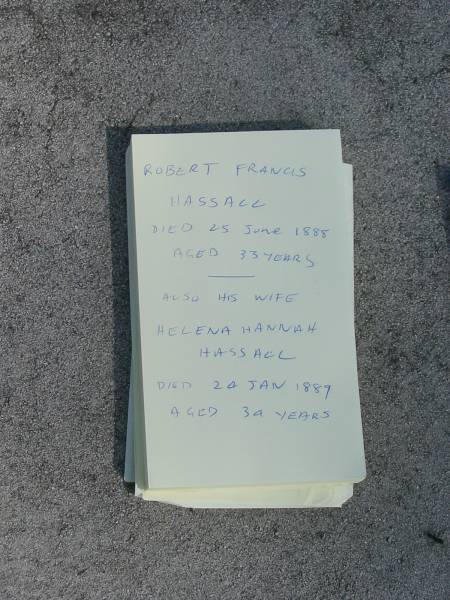 ROBERT FRANCIS
HASSALL
DIED 25 June 1888
AGED 33 YEARS
ALSO HIS WIFE
HELENA HANNAH
HASSALL
DIED 24 JAN 1889
AGED 34 YEARS